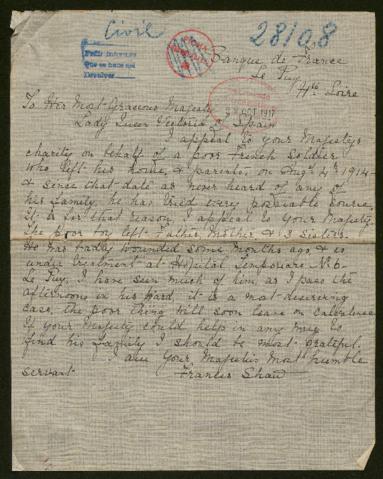 Civil
28108
Pedir informes
Que se haga qui
Devolver
Banque de France
Le Puy
Hte Loire
To Her Most Gracious Majesty
Lady Queen Victoria of Spain
OCT 1917
I appeal to your Majestys
charity on behalf of a poor French Soldier
who left his home, & parents, on Augt 4th 1914
& sence that date as never heard of any of
his family, he has tried every possiable source,
It is for that reason, I appeal to your Majesty
The poor boy left Father Mother & 3 Sisters.
He was badly wounded some months ago & is
under treatment at Hospital Temporaire No 6-
Le Puy, I have seen much of him as I pass the
afternoons in his ward, it is a most deserving
case, the poor thing will soon leave on
If your Majesty could help in any way to
find his family I should be most grateful.
I am Your Majesties most humble
servant Frances Shaw